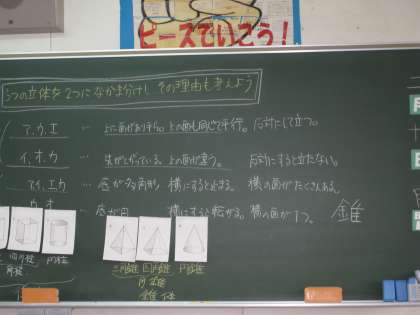 ピースでいこう!
6つの立体を2つになかま分けし その理由も考えよう
ア、ウ、エ … 上に面があり平ら。上の面も同じで平行。反対にして立つ。
イ、オ、カ … 先がとがっている。上の面が違う。 反対にすると立たない。
アイ、エカ … 底が多角形 横にすると止まる。 横の面がたくさんある。
ウオ … 底が円 横にすると転がる。横の面が1つ。 錐
四角柱 円柱 三角錐 四角錐 円錐
角柱 角錐
錐体